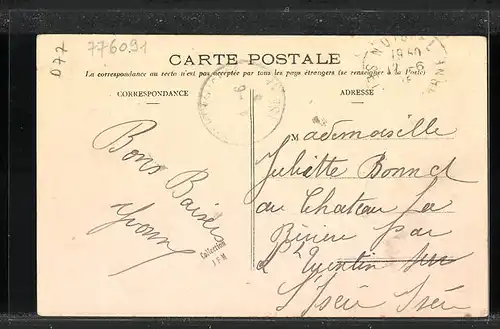 D77
776091
CARTE POSTALE
La correspondance au recto n'est pas acceptée par tous les pays étrangers (se renseigner à la Poste)
CORRESPONDANCE
ADRESSE
Bons Baisers
Yvonne
Collection
Mademoiselle
Juliette Bonnet
au Chateau La
par
St Quentin sur
Isère Isère